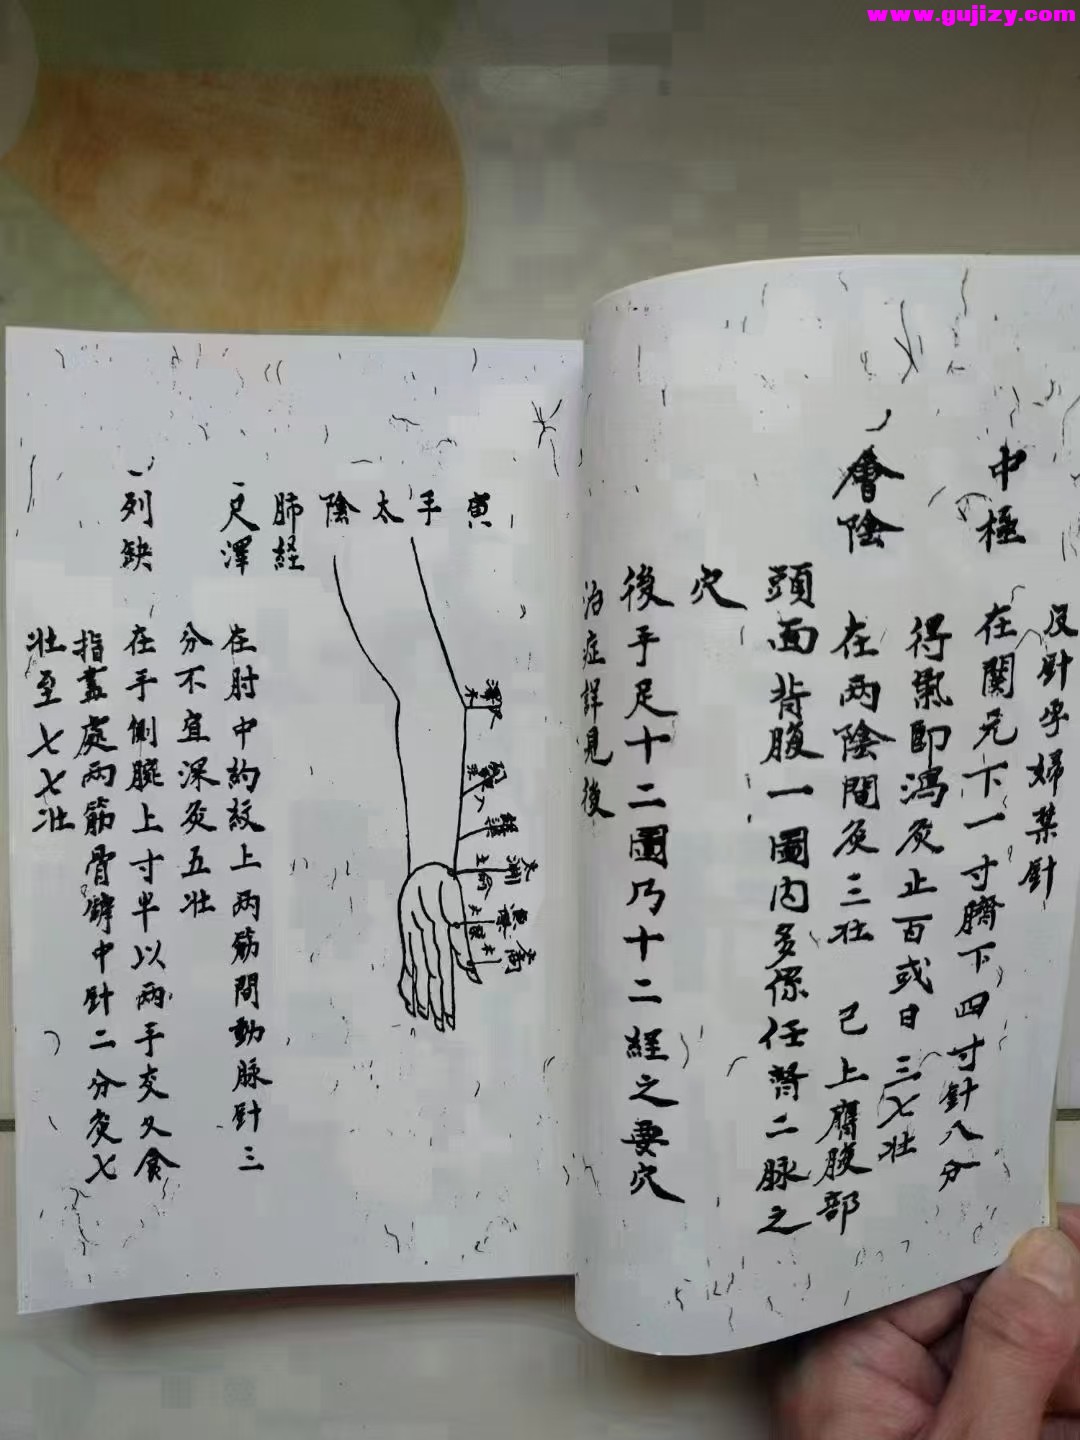 www.gujizy.com
孕婦禁針
中極
在關元下一寸臍下四寸針八分
得氣即瀉灸止百或日三七壯
會陰
在兩陰間灸三壯 已上膺腹部
頭面背腹一圖內多係任督二脉之
穴
後手足十二圖乃十二経之要穴
治症詳見後
寅手太陰肺経
尺澤
在肘中約紋上兩筋間動脉針三
分不宜深灸五壯
列缺
在手側腕上寸半以兩手交叉食
指盡處兩筋骨罅中針二分灸七
壯至七七壯